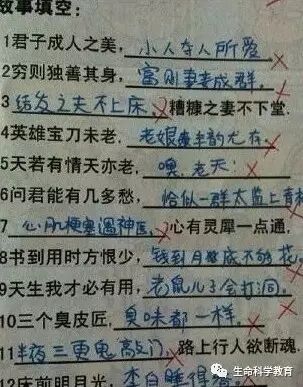 故事填空：
1君子成人之美，小人夺人所爱
2穷则独善其身，富则妻妾成群。
3结发之夫不上床，糟糠之妻不下堂.
4英雄宝刀未老，老娘丰韵尤存.
5天若有情天亦老，噢，老天！
6问君能有几多愁，恰似一群太监上青
7心肌梗塞遇神医，心有灵犀一点通，
8书到用时方恨少，钱到月底不够花，
9天生我才必有用，老鼠儿子会打洞。
10三个臭皮匠，臭味都一样。
11半夜三更鬼敲门，路上行人欲断魂.
12床前明月光，李白睡得
生命科学教育